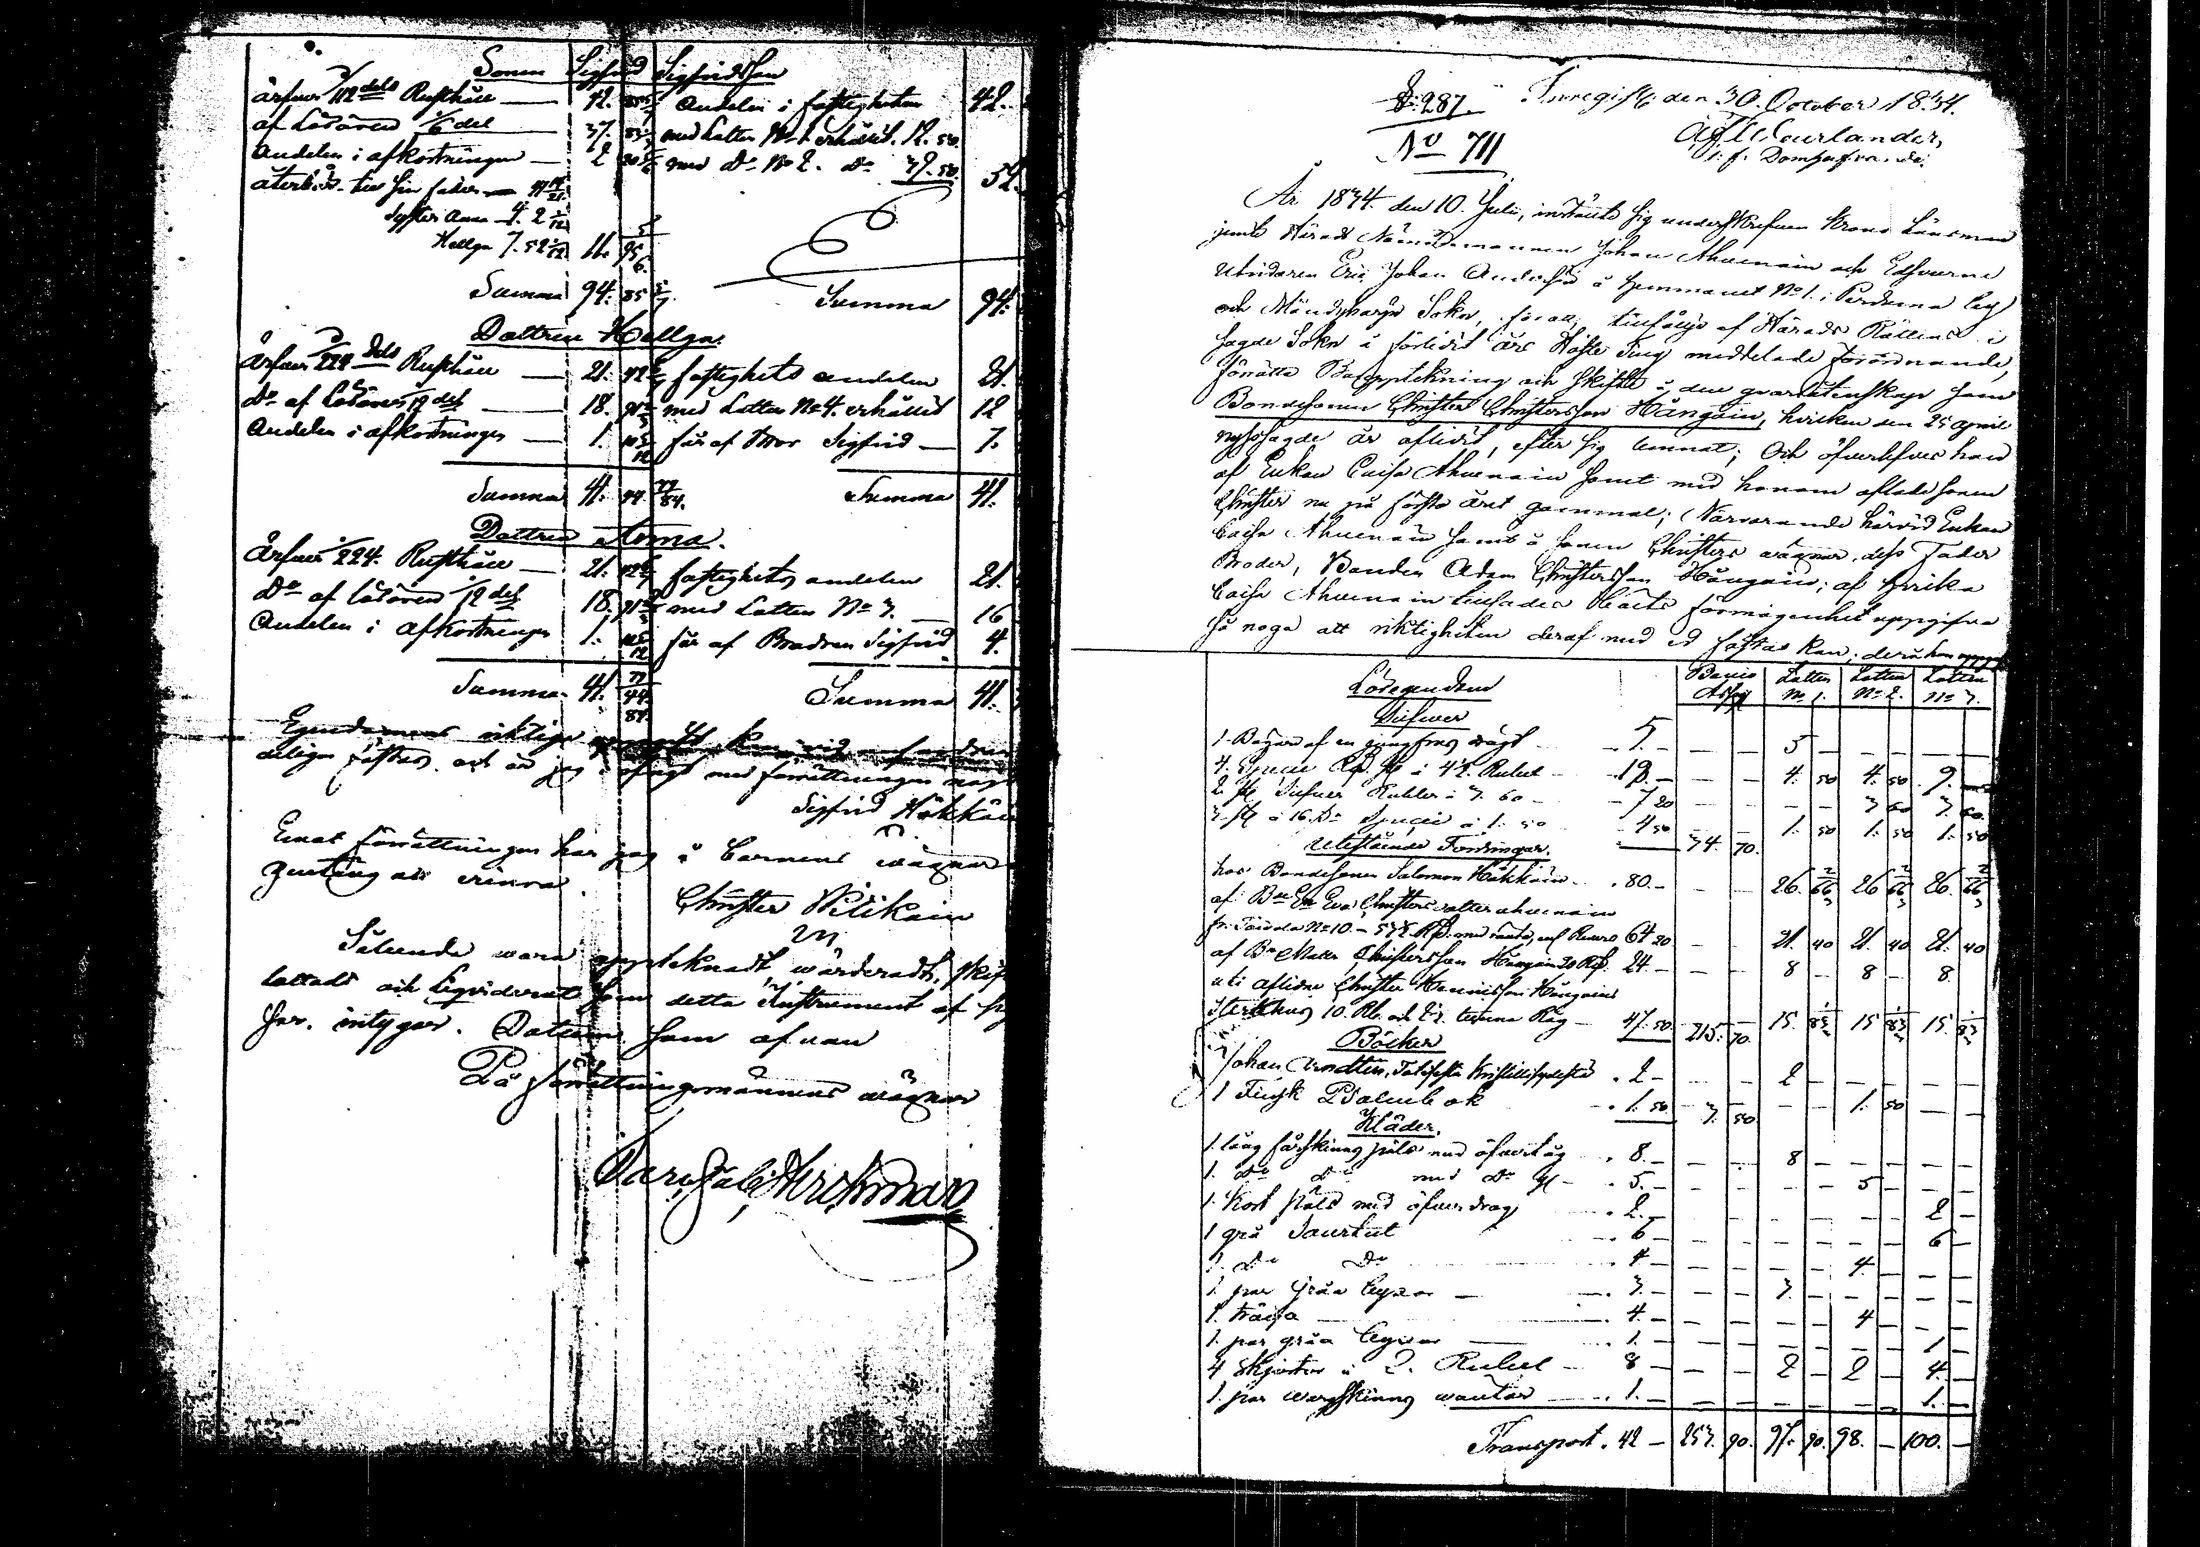 Sonen Sigfrid Sigfridsson
ärfver 3/112 dels Rusthåll — 42. 85 5/7 Andelen i fastigheten 42.
af Lösören 1/6 del 37. 83 med Lotten No 1 erhållit. 12. 50.
Andelen i afkortningen — 2 20 5/6 med Do No 2. Do 39. 50. 52.
återbär till sin fader
Syster Anna 4. 2 1/12
Hellga 7. 52 1/12 11. 95
Summa 94. 85 5/7. Summa 94.
Dottren Hellga.
Ärfver 3/224 Dels Rusthåll — 21. 42 6/7 fastighets andelen 21.
Do af Lösören 1/12 del — 18. 91 med Lotten No 4. erhållit 12
Andelen i afkortningen — 1. 10 5/12 får af Bror Sigfrid — 7.
Summa 41. 44 77/84. Summa 41.
Dottren Anna.
Ärfver 3/224. Rusthåll — 21. 42 6/7 fastighets andelen 21.
Do af lösören 1/12 del 18. 91 med Lotten No 3. — 16
Andelen i afkortningen 1. 10 5/12 får af Brodren Sigfrid 4.
Summa 41. 44 77/84. Summa 41.
Egendomens riktiga
edligen fästas, och är jag nögd med förrättningen
Sigfrid Hökkäin
Emot förrättningen har jag å Barnens wägnar
genting att erinra.
Christer Pilikain
Sålunda wara upptecknadt, wärderadt, skif
lottadt och Liquiderat som detta Instrument af
har, intygar. Datum som ofvan
På förrättningsmännens wägnar
Carl Gabr. Akrenman
S: 287. Inregistr. den 30. October 1834.
No 711
t. f. Domhafvande.
År 1834. den 10. Juli, instälte sig undertecknad Krono Länsman
jemte Härads Nämndemannen Johan Ahvenain och Edsvurne
Utridaren Eric Johan å Hemmanet No 1. i by
och Mändyharju Sokn, för att, till följe af Härads Rättens i
sagde Sokn å förledit års Höste Ting meddelade förordnande,
förrätta Bouppteckning och skifte å den qvarlåtenskap som
Bondesonen Christer Christersson Hängäin, hvilken den 25 April
nyssagde år aflidit, efter sig lemnat; Och öfverlefves han
af Enkan Caisa Ahvenain samt med honom aflade sonen
Christer nu på första året gammal; Närvarande härvid Enkan
Caisa Ahvenain samt å sonen Christers wägnar dess Fader
Broder, Bonden Adam Christersson Hängäin; af hvilka
Caisa Ahvenain tillsades Boets förmögenhet uppgifva
så noga att riktigheten deraf med ed fästas kan, derå hon uppgaf
Lösegendom Banco Assign Lotten No 1. Lotten No 2. Lotten No 3.
Silfver
1 Bägare af en jungfrus wägt 5. — — — 5 — — — — —
4. Specie Rd. St à 4½. Rubel — 18. — — — 4. 50 4. 50. 9. —
2 St Silfver Rubler à 3. 60 — 7 20 — — — — 3 60 3. 60.
3. St à 16. Sk. Specie à 1. 50 4 50 34. 70. 1. 50 1. 50 1. 50
Utestående Fordringar.
hos Bondesonen Salomon Hökkäin .80. — — — 26. 66 2/3 26 66 2/3 26. 66 2/3
af Bde En Eva Christersdotter Ahvenain
fr. No 10. — 64 20 — — 21. 40 21. 40 21. 40
af Bn Matts Christersson Hängäin 24 — — — 8 — 8 — 8. —
uti aflidne Christer Hannusson Hängäins
Sterbhus 10. Rb. och 2½. tunna Råg — 47. 50. 215. 70. 15. 83 15 83 15. 83
Böcker
1 Johan Arndtin, . 2 — — — 2 — — — — —
1 Finsk Psalmbok . 1. 50 3. 50 — — 1. 50 — —
Kläder.
1. lång fårskinns päls med öfvertåg . 8. — — — 8 — — — — —
1. Do Do med Do . 5. — — — — — 5 — — —
1. Kort päls med öfverdrag . 2. — — — — — — — 2 —
1 grå Saurtut . 6 — — — — — — — 6 —
1. Do Do . 4 — — — — — 4. — — —
1. par gråa byxor — . 3. — — — 3. — — — — —
1. tröija . 4. — — — — — 4 — — —
1. par gråa byxor . 1. — — — — — — — 1 —
4 Skjortor à 2. Rubel — 8 — — — 2 — 2 — 4. —
1. par wargskinns wantar . 1. — — — — — — — 1. —
Transport. 42 — 253. 90. 97. 90. 98. — 100. —